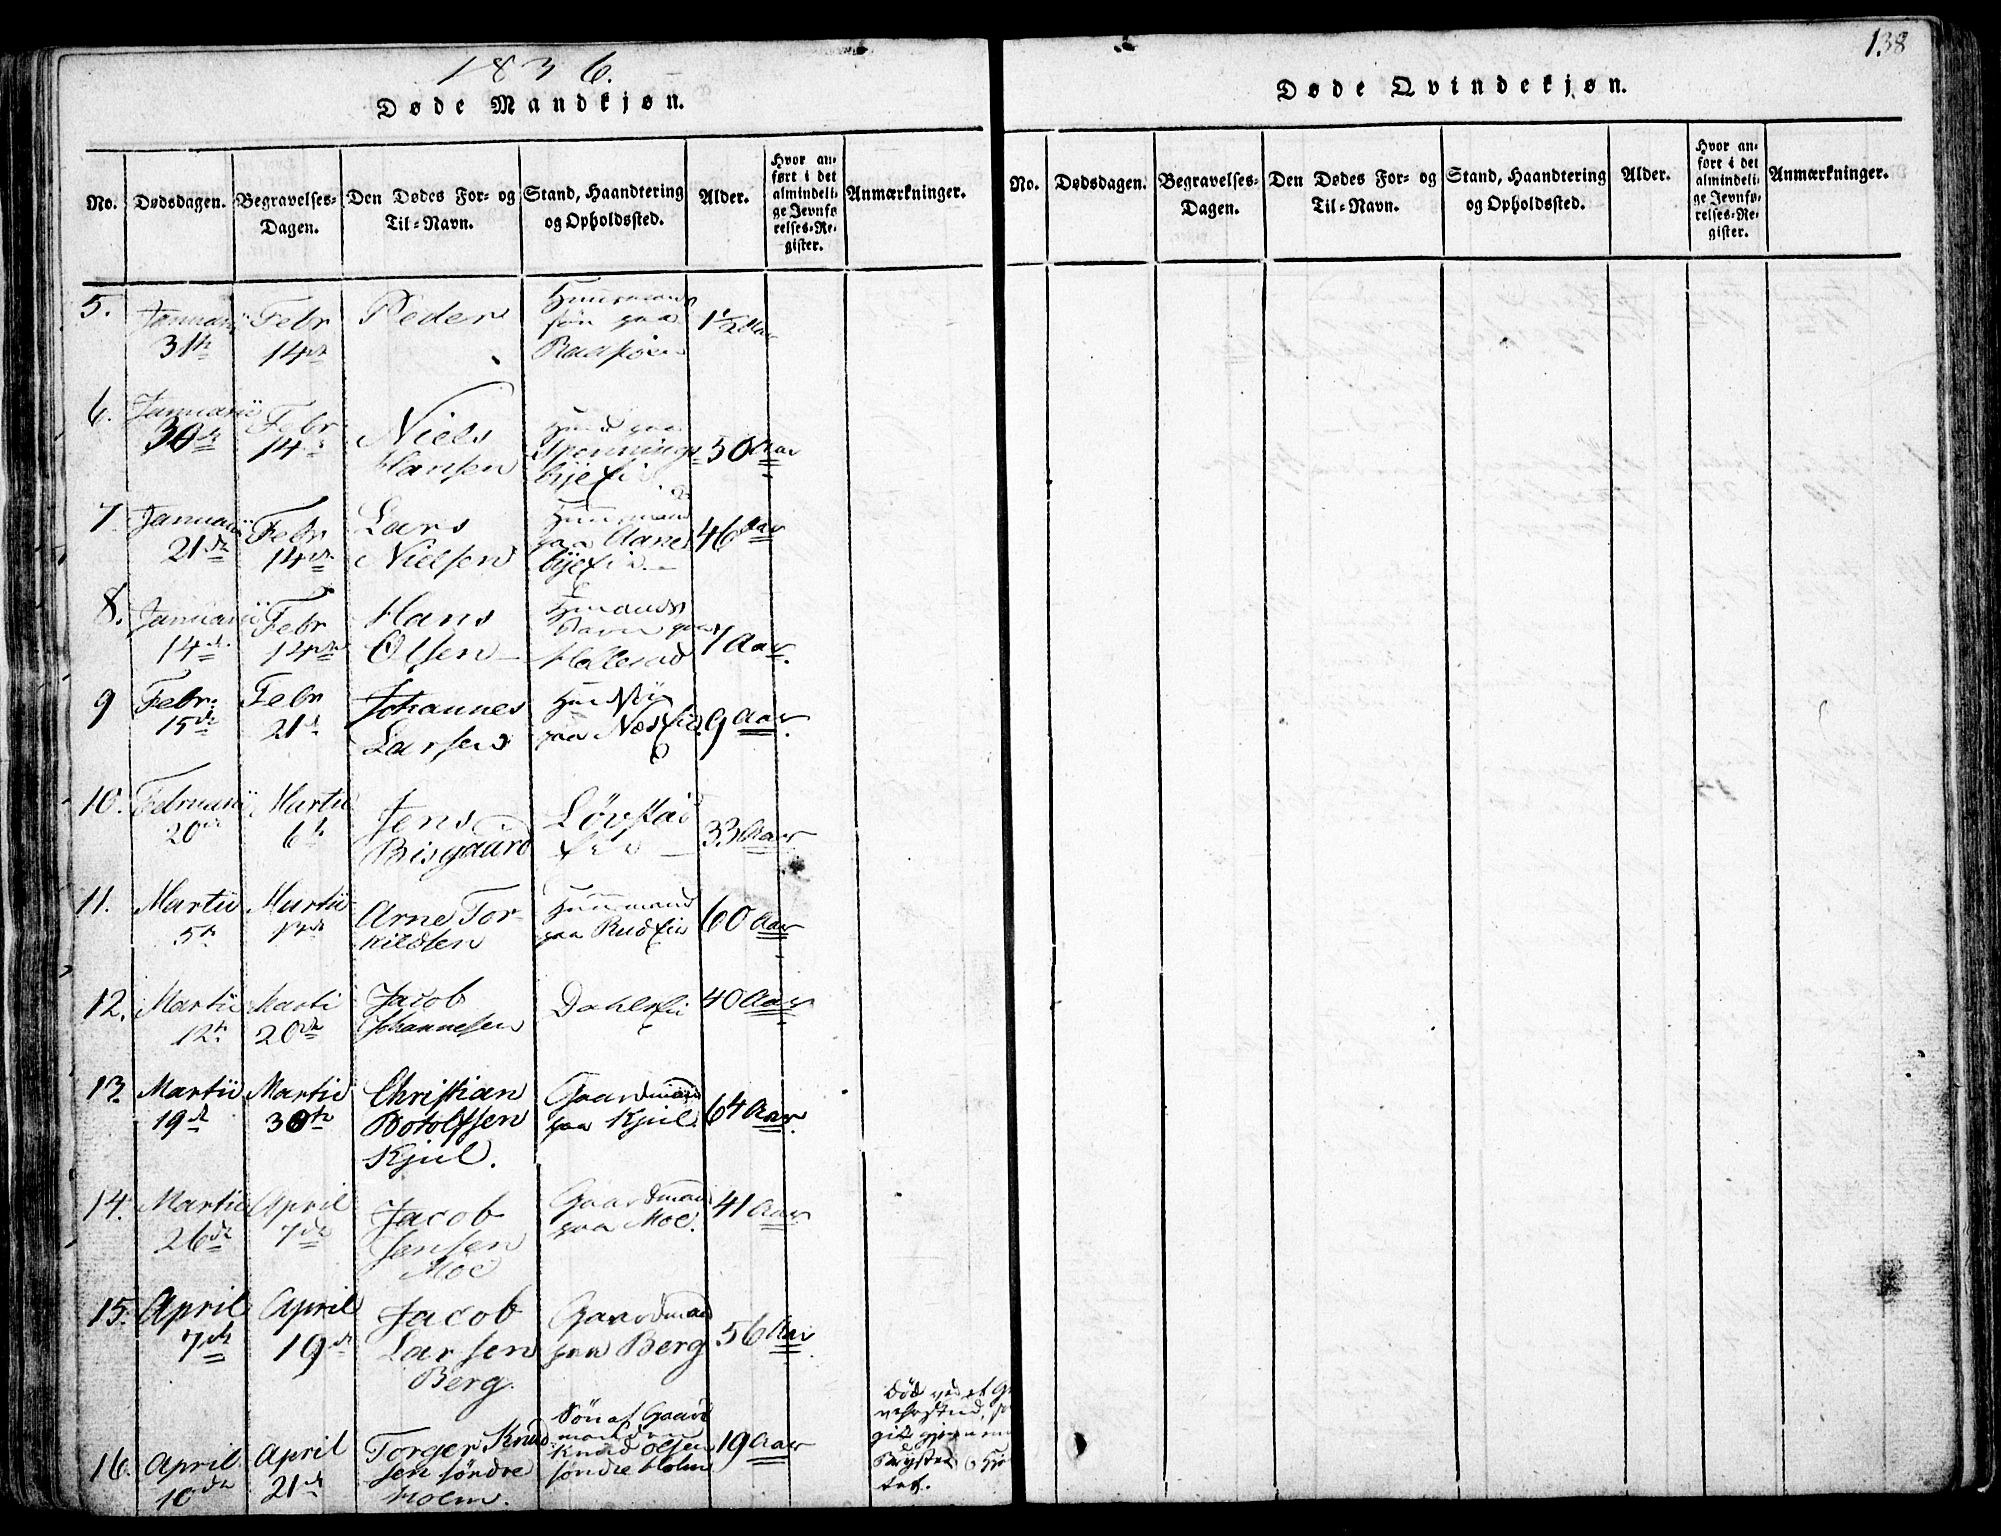 138
1836.
Døde Mandkjøn.
No.
Dødsdagen.
Begravelses-
Dagen.
Den Dødes For- og
Til-Navn.
Stand, Haandtering
og Opholdssted.
Alder.
Hvor an-
ført i det
almindeli-
ge Jevnfø-
relses-Re-
gister.
Anmærkninger.
5.
Januarii
31te
Febr
14de
Peder
søn paa
1½ Aar
6.
Januarii
30te
Febr
14de
Niels
Hansen
50 Aar
7.
Januarii
21de
Febr
14de
Lars
Nielsen
Huusmand
46 Aar
8.
Januarii
14de
Febr
14de
Hans
Olsen
1 Aar.
9
Febr.
15de
Febr
21de
Johannes
Larsen
paa
9 Aar.
10.
Februarii
20de
Martii
6te
Jens
Bisgaard
Løvstad
33 Aar
11.
Martii
5te
Martii
Arne Tor-
kildsen
Huusmand
paa Rud
60 Aar
12.
Martii
12te
Marti
20de
Jacob
Johannesen
40 Aar
13.
Martii
19de
Martii
30te
Christian
Botolfsen
Kjul.
Gaardmand
paa Kjul
64 Aar.
14.
Martii
26de
April
7de
Jacob
Jensen
Moe
Gaardmand
paa Moe.
41 Aar
15.
April
7de
April
19de
Jacob
Larsen
Berg.
Gaardmand
paa Berg
56 Aar
16.
April
10de
April
21de
Torger Knud
sen søndre
Holm.
Søn af Gaard
manden
Knud Olsen
søndre Holm
19 Aar
død ved et
gik gjennem
Brystet
Døde Qvindekjøn.
No.
Dødsdagen.
Begravelses-
Dagen.
Den Dødes For- og
Til-Navn.
Stand, Haandtering
og Opholdssted.
Alder.
Hvor an-
ført i det
almindeli-
ge Jevnfø-
relses-Re-
gister.
Anmærkninger.